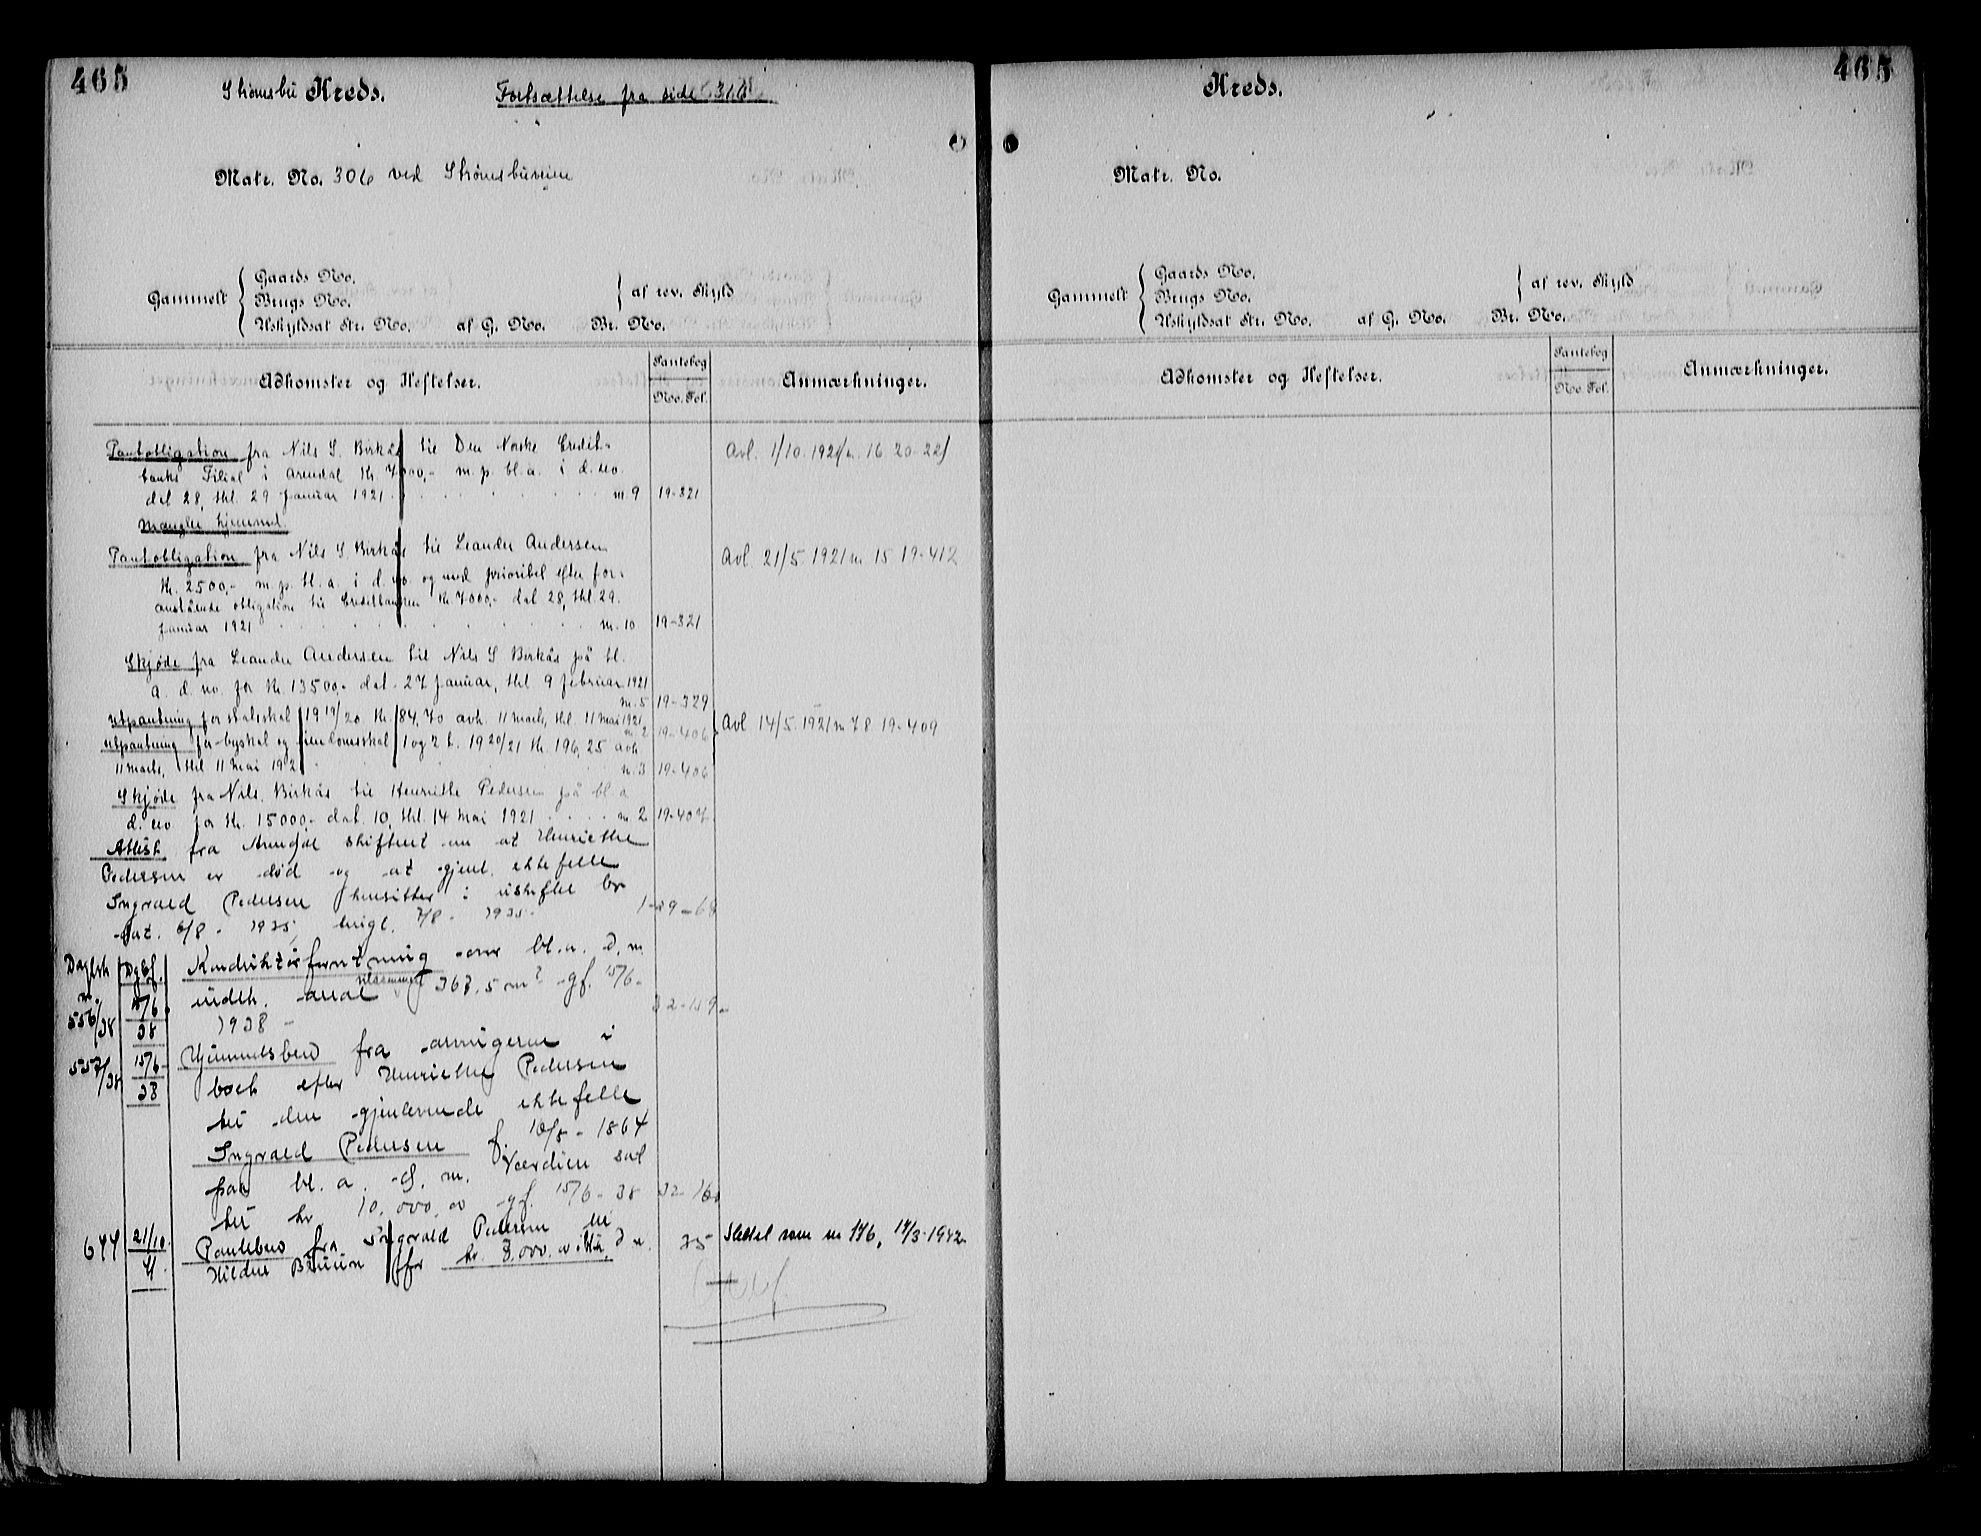 465
Strømsbu Kreds. Fortsættelse fra side
Matr. No. 306 ved Strømsbuveien
Gammelt
Gaards No.
Brugs No.
Uskyldsat Str. No. af G. No. Br. No.
af rev. Skyld
Adkomster og Heftelser.
Pantebog
No. Fol.
Anmærkninger.
Pantobligation fra Nils S. Birkås til Den Norske Credit-
banks Filial i Arendal Kr. 7000,- m. p. bl. a. i d. no.
dat 28, thl. 29 Januar 1921 m. 9 19-321
Avl. 1/10. 1921 n. 16 20-22
Mangler hjemmel
Pantobligation fra Nils S. Birkås til Leander Andersen
Kr. 2500,- m. p. bl. a. i d. no og med prioritet efter for-
anstående obligation til Creditbanken Kr 7000,- dat 28, thl. 29.
Januar 1921 m. 10 19-321
Avl. 21/5 1921 n. 15 19-412
Skjøde fra Leander Andersen til Nils S Birkås på bl.
a. d. no. for Kr. 13500,- dat. 27 Januar, thl 9 februar 1921
m. 5 19-329
Utpantning for statsskat 1919/20 Kr. 84,70 avh. 11 marts, thl. 11 mai 1921
n. 2 19-406
Utpantning for byskat og eiendomsskat 1 og 2 t. 1920/21 Kr. 196,25 avh
11 marts, thl 11 mai 1921 n. 3 19-406
Avl 14/5. 1921 n 78 19-409
Skjøde fra Nils. Birkås til Henriette Pedersen på bl. a
d. no for Kr. 15000,- dat. 10, thl. 14 mai 1921 n 2 19-407
Attest fra Arendal skifterett om at Henriette
Pedersen er død og at gjenl. ektefelle
Ingvald Pedersen hensitter i uskiftet bo
dat. 6/8 - 1935, tingl. 7/8 - 1935 -
Dagbok Dgbf.
n. 556/38 15/6. 38
Konduktørforretning over bl. a. d. m.
indth. areal tilsammen 367.5 m² gf. 15/6-
1938 - 32-159-
557/38 15/6- 38
Hjemmelsbrev fra arvingerne i
boet efter Henriette Pedersen
til den gjenlevende ektefelle
Ingvald Pedersen f. 10/8 - 1864
paa bl. a. d. m. Værdien sat
til kr. 10.000,00 gf. 15/6-38 32-160
644 21/10. 41.
Pantebrev fra Ingvald Pedersen til
Hildur Bruun for kr. 8.000.00 i d n. 35
Slettet som nr 176, 17/3-1942
465
Kreds.
Matr. No.
Gammelt
Gaards No.
Brugs No.
Uskyldsat Str. No. af G. No. Br. No.
af rev. Skyld
Adkomster og Heftelser.
Pantebog
No. Fol.
Anmærkninger.